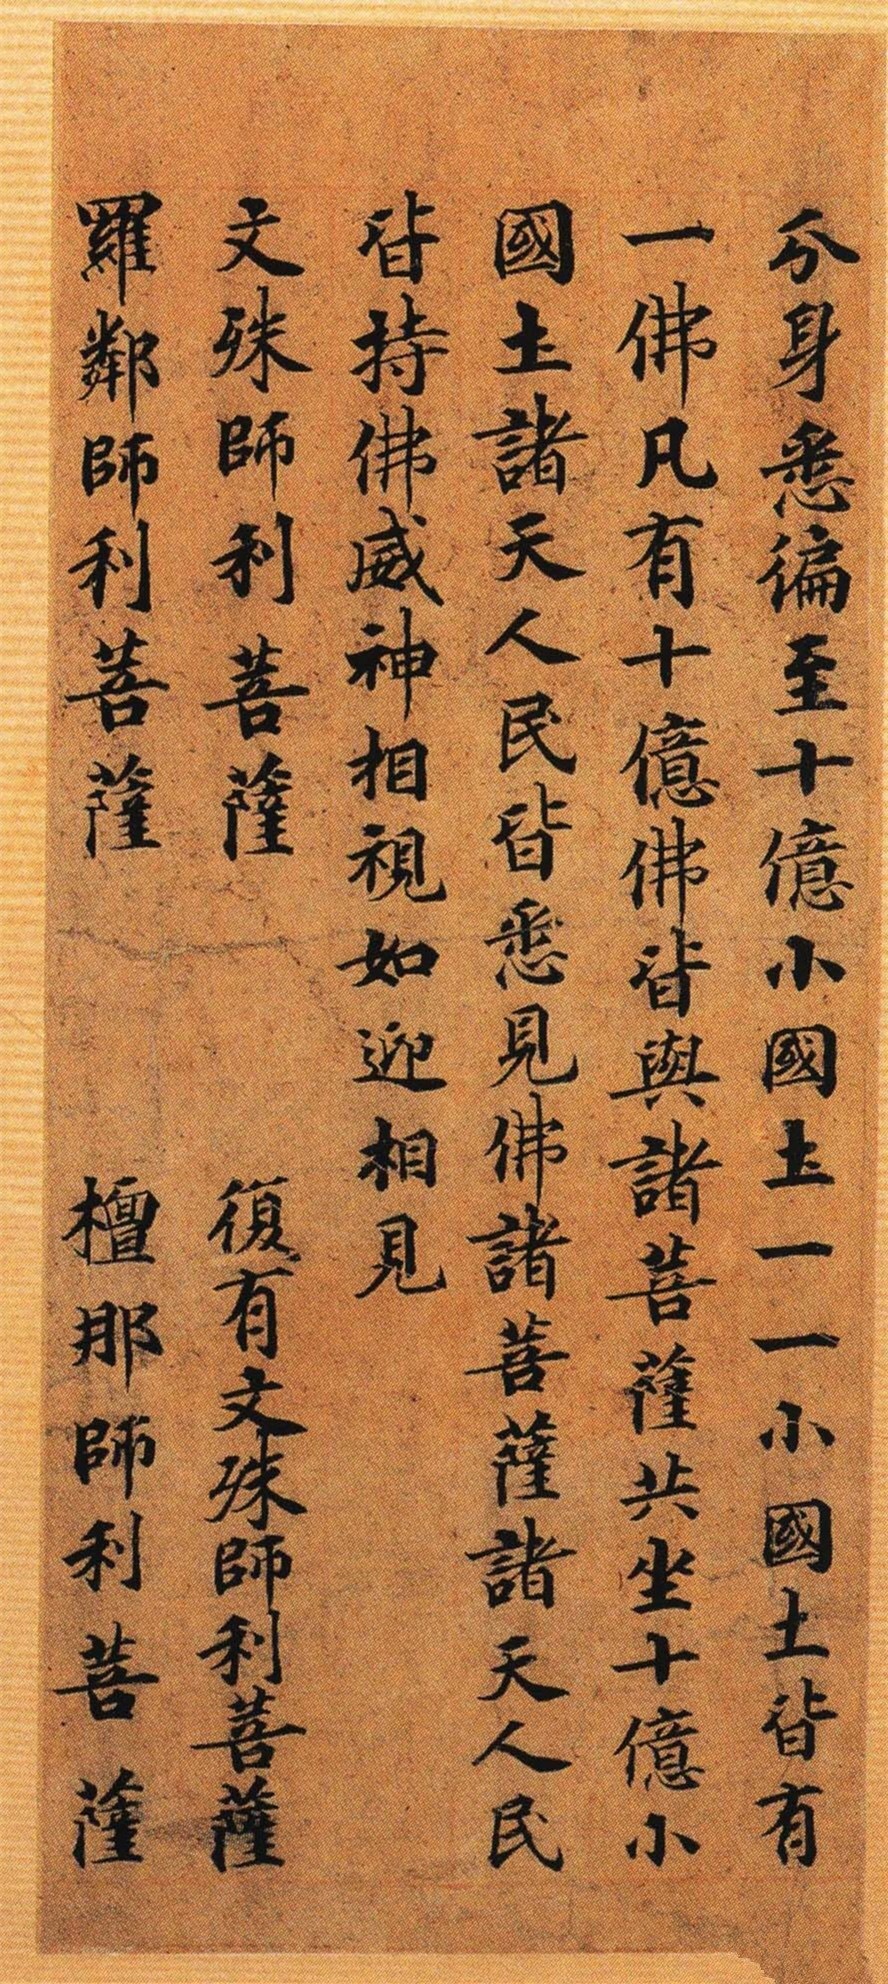 分身悉徧至十億小國土一一小國土皆有
一佛凡有十億佛皆與諸菩薩共坐十億小
國土諸天人民皆悉見佛諸菩薩諸天人民
皆持佛威神相視如迎相見
文殊師利菩薩　復有文殊師利菩薩
羅鄰師利菩薩　檀那師利菩薩